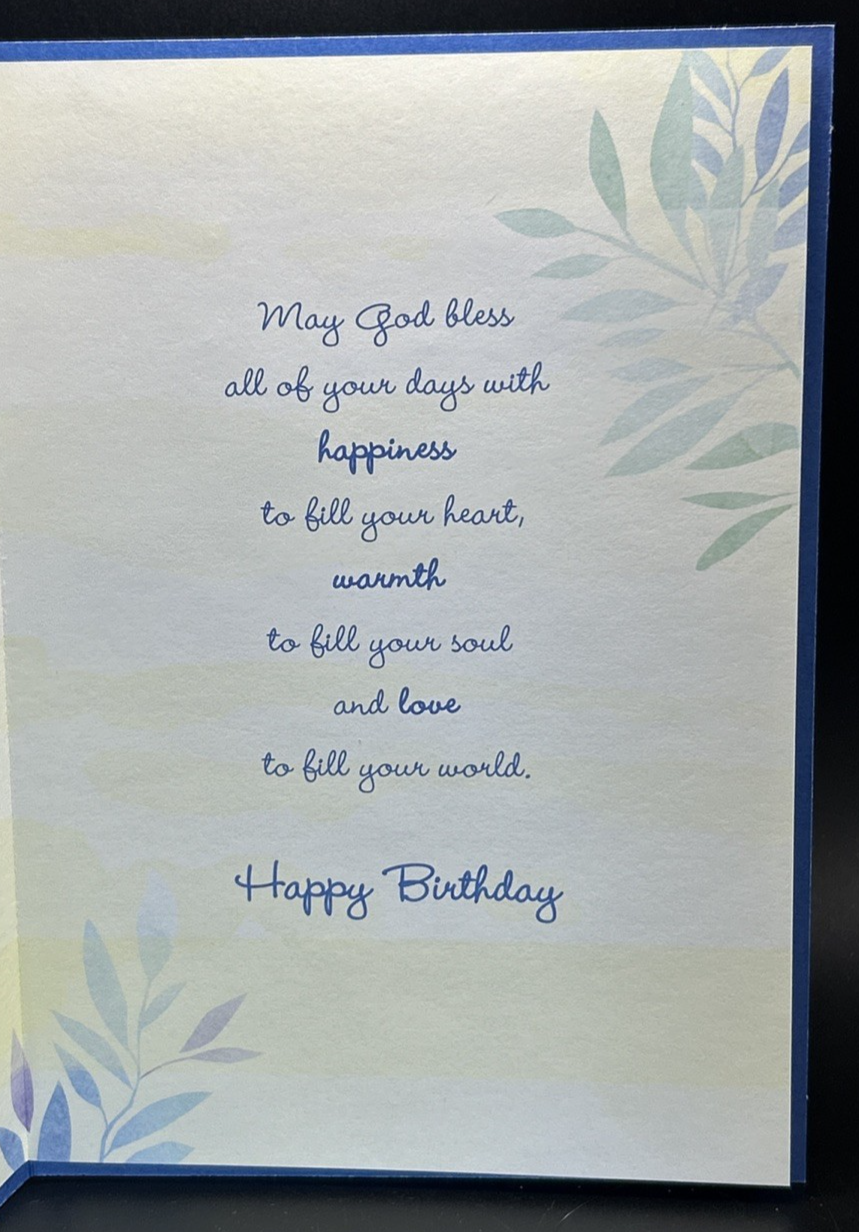 May God bless
all of your days with
happiness
to fill your heart,
warmth
to fill your soul
and love
to fill your world.
Happy Birthday